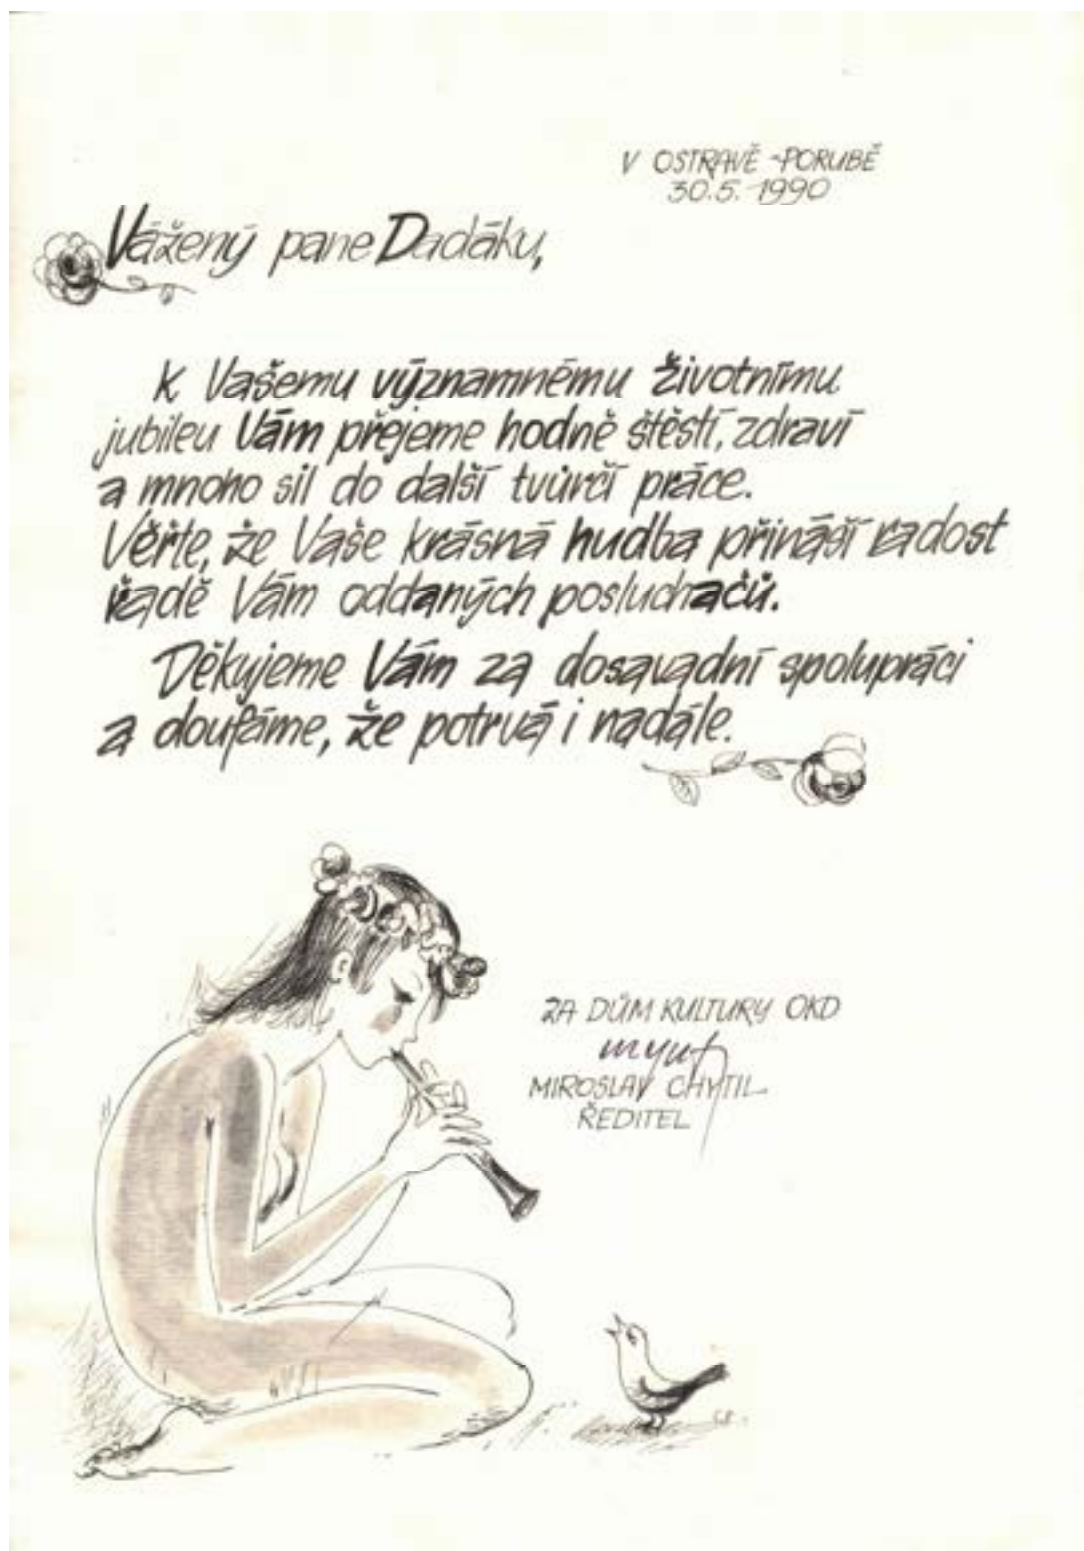 V OSTRAVĚ-PORUBĚ
30.5.1990
Vážený pane Dadáku,
K Vašemu významnému životnímu
jubileu Vám přejeme hodně štěstí, zdraví
a mnoho sil do další tvůrčí práce.
Věřte, že Vaše krásná hudba přináší radost
řadě Vám oddaných posluchačů.
Děkujeme Vám za dosavadní spolupráci
a doufáme, že potrvá i nadále.
ZA DŮM KULTURY OKD
MIROSLAV CHYTIL
ŘEDITEL